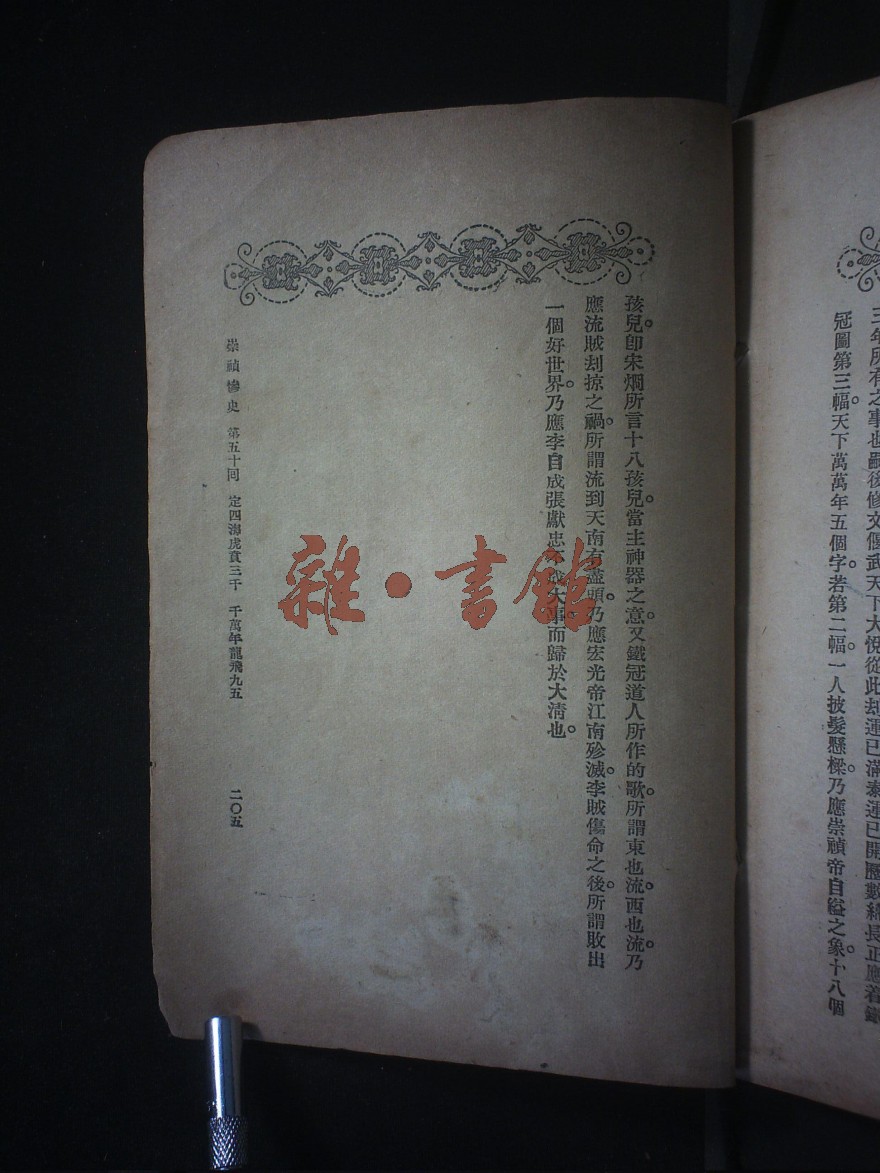 三年所有之事也嗣後修文偃武天下大悅從此却運已滿泰運已開歷數綿長正應着鐵
冠圖第三幅。天下萬萬年五個字。若第二幅。一人披髮懸樑。乃應崇禎帝自縊之象。十八個
孩兒。卽宋烱所言十八孩兒。當主神器之意。又鐵冠道人所作的歌。所謂東也流。西也流。乃
應流賊刦掠之禍。所謂流到天南有盡頭。乃應宏光帝江南殄滅。李賊傷命之後。所謂敗出
一個好世界。乃應李自成張獻忠不成大事。而歸於大清也。
崇禎慘史 第五十回 定四海虎賁三千 千萬年龍飛九五 二〇五
雜·書館